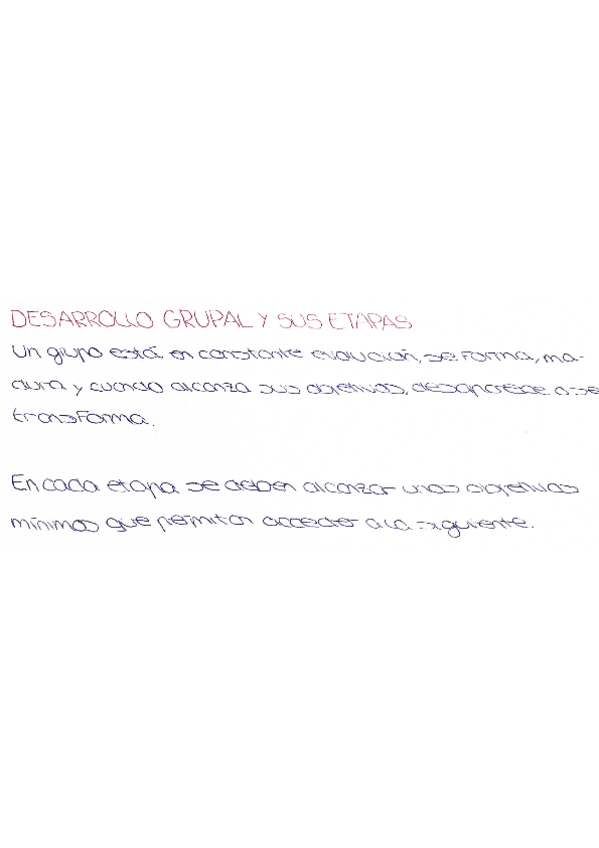 DESARROLLO GRUPAL Y SUS ETAPAS
Un grupo está en constante evolución, se forma, ma-
dura y cuando alcanza sus objetivos, desaparece o se
transforma.
En cada etapa se deben alcanzar unos objetivos
mínimos que permitan acceder a la siguiente.